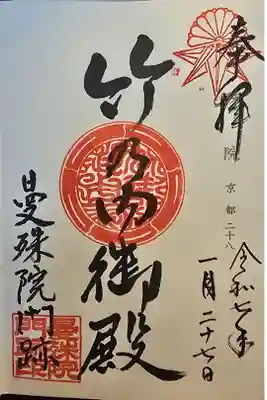 奉拝
院 京都二十八
令和七年
一月二十七日
竹の内御殿
曼殊院門跡